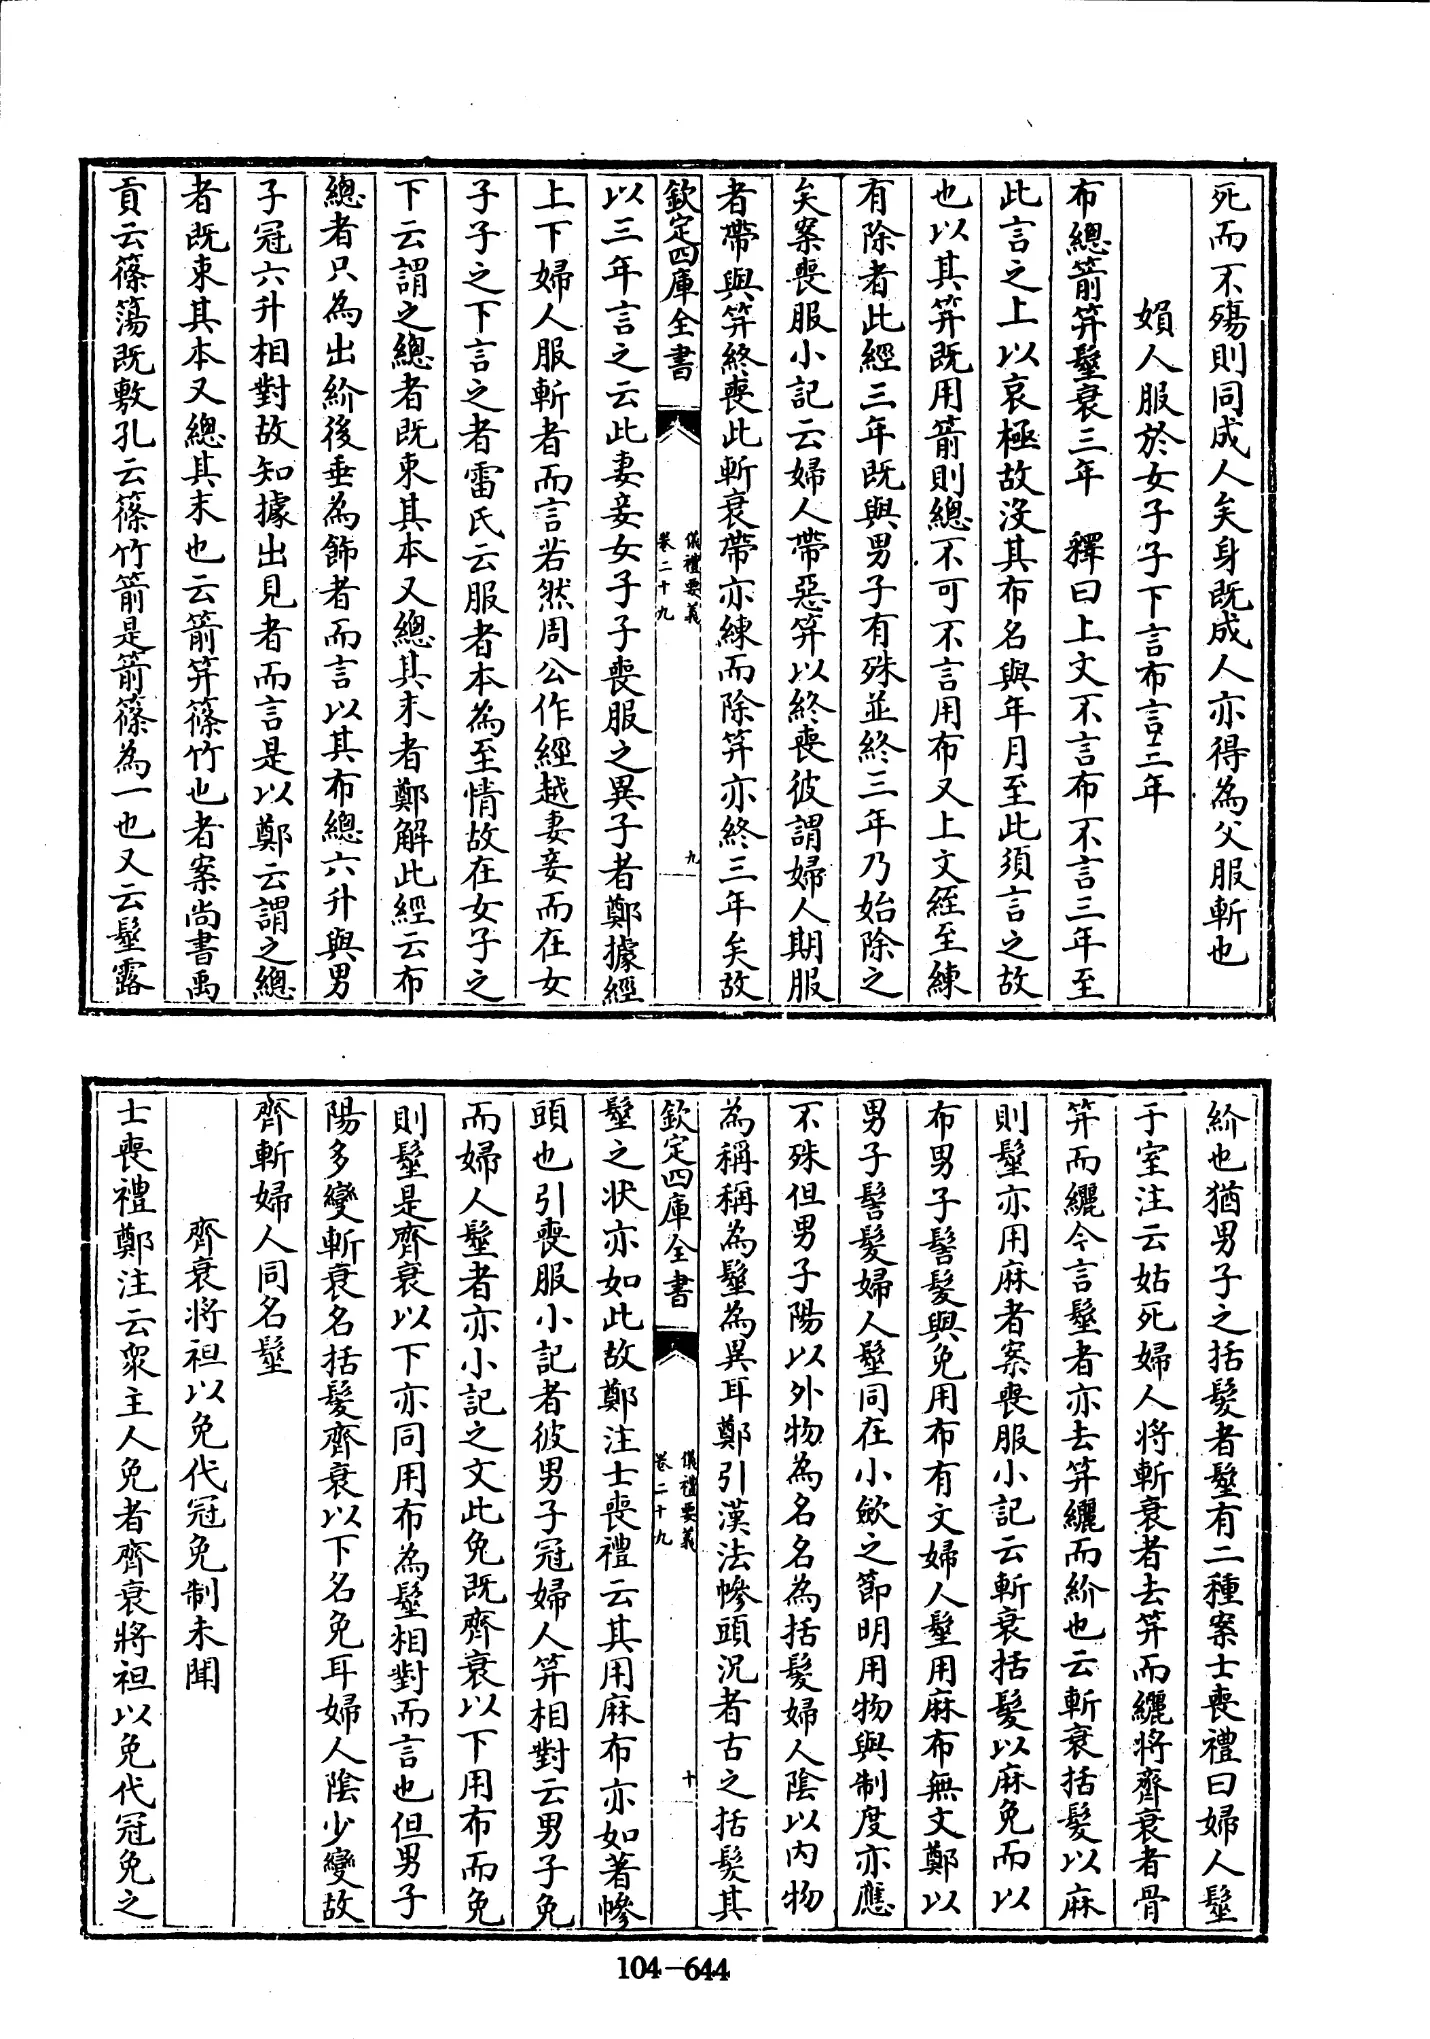 死而不殤則同成人矣身既成人亦得為父服斬也
媍人服於女子子下言布言三年
布總箭笄髽衰三年　釋曰上文不言布不言三年至
此言之上以哀極故沒其布名與年月至此須言之故
也以其笄既用箭則總不可不言用布又上文絰至練
有除者此經三年既與男子有殊並終三年乃始除之
矣案喪服小記云婦人帶惡笄以終喪彼謂婦人期服
者帶與笄終喪此斬衰帶亦練而除笄亦終三年矣故
欽定四庫全書
儀禮要義
卷二十九
九
以三年言之云此妻妾女子子喪服之異子者鄭據經
上下婦人服斬者而言若然周公作經越妻妾而在女
子子之下言之者雷氏云服者本為至情故在女子之
下云謂之總者既束其本又總其末者鄭解此經云布
總者只為出紒後垂為飾者而言以其布總六升與男
子冠六升相對故知據出見者而言是以鄭云謂之總
者既束其本又總其末也云箭笄篠竹也者案尚書禹
貢云篠簜既敷孔云篠竹箭是箭篠為一也又云髽露
紒也猶男子之括髮者髽有二種案士喪禮曰婦人髽
于室注云姑死婦人將斬衰者去笄而纚將齊衰者骨
笄而纚今言髽者亦去笄纚而紒也云斬衰括髮以麻
則髽亦用麻者案喪服小記云斬衰括髮以麻免而以
布男子髻髮與免用布有文婦人髽用麻布無文鄭以
男子髻髮婦人髽同在小斂之節明用物與制度亦應
不殊但男子陽以外物為名名為括髮婦人陰以內物
為稱稱為髽為異耳鄭引漢法幓頭況者古之括髮其
欽定四庫全書
儀禮要義
卷二十九
十
髽之狀亦如此故鄭注士喪禮云其用麻布亦如著幓
頭也引喪服小記者彼男子冠婦人笄相對云男子免
而婦人髽者亦小記之文此免既齊衰以下用布而免
則髽是齊衰以下亦同用布為髽相對而言也但男子
陽多變斬衰名括髮齊衰以下名免耳婦人陰少變故
齊斬婦人同名髽
齊衰將袒以免代冠免制未聞
士喪禮鄭注云眾主人免者齊衰將袒以免代冠免之
104-644